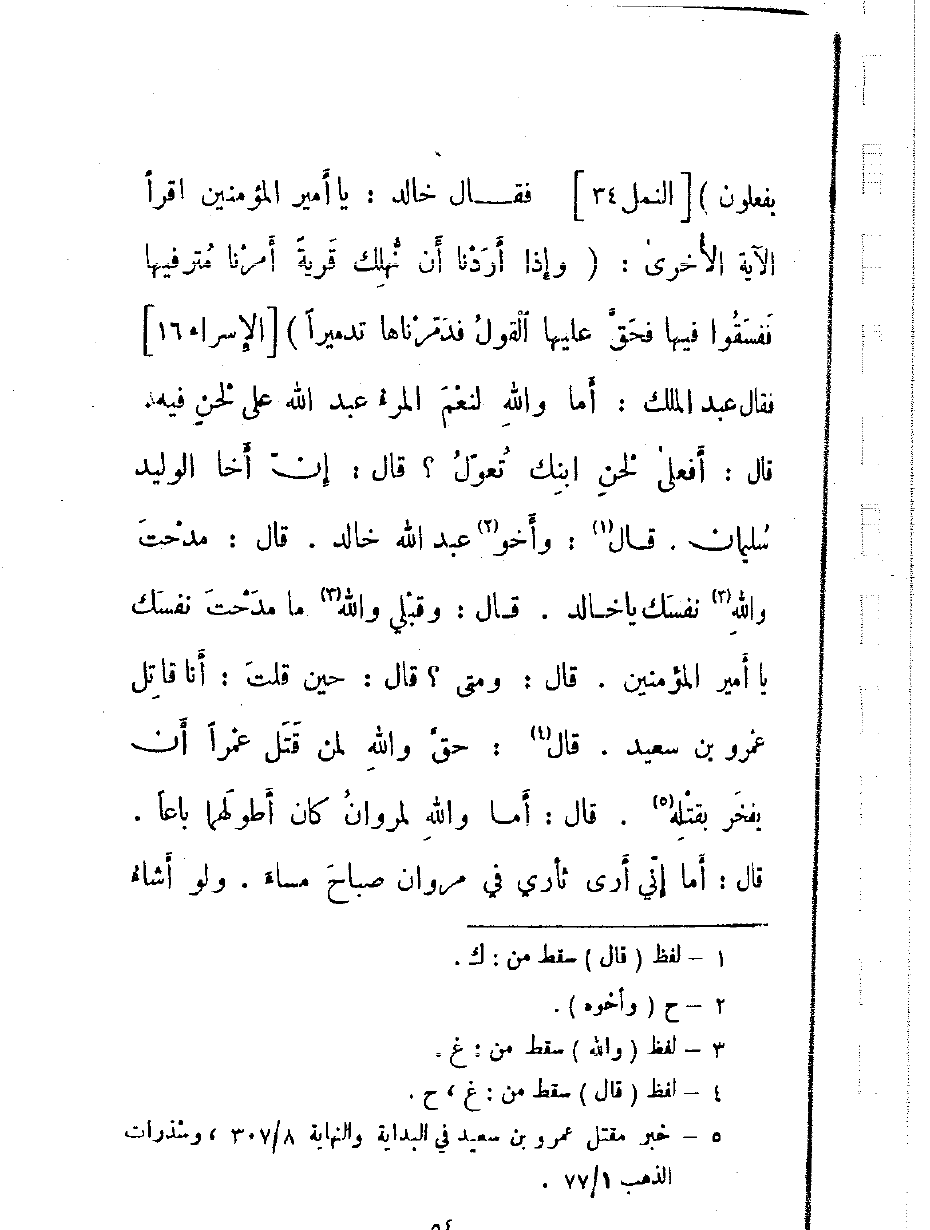 يفعلون ) [ النمل ٣٤ ] فقـــال خالد : يا أَمير المؤمنين اقرأ
الآية الأُخرىٰ : ( وإذا أَرَدْنا أَن نُّهلِك قَريةً أَمرْنا مُترفيها
فَفسَقُوا فيها فحَقَّ عليها ٱلْقولُ فدَمّرْناها تدميراً ) [ الإسراء ١٦ ]
فقال عبد الملك : أَما واللهِ لنعْمَ المرءُ عبد الله على لحْنٍ فيه.
قال : أَفعلىٰ لحْنِ ابنِك تُعوّلُ ؟ قال : إنّ أَخا الوليد
سُليمان . قـال(١) : وأَخو(٢) عبد الله خالد . قال : مدحْتَ
واللهِ(٣) نفسَك يا خـالد . قـال : وقبْلي والله(٣) ما مدَحْتَ نفسَك
يا أَمير المؤمنين . قال : ومتى ؟ قال : حين قلتَ : أَنا قاتِل
عمْرو بن سعيد . قال(٤) : حقَّ واللهِ لمن قَتَل عمْراً أَن
يفخَر بقتْلِه(٥) . قال : أَمـا واللهِ لمروانُ كان أَطولَهما باعاً .
قال : أَما إنّي أَرى ثأري في مروان صباحَ مساءَ . ولو أَشاءُ
١ – لفظ ( قال ) سقط من : ك .
٢ – ح ( وأخوه ) .
٣ – لفظ ( والله ) سقط من : غ .
٤ – لفظ ( قال ) سقط من : غ ، ح .
٥ – خبر مقتل عمرو بن سعيد في البداية والنهاية ٣٠٧/٨ ، وشذرات
الذهب ٧٧/١ .
٥٤